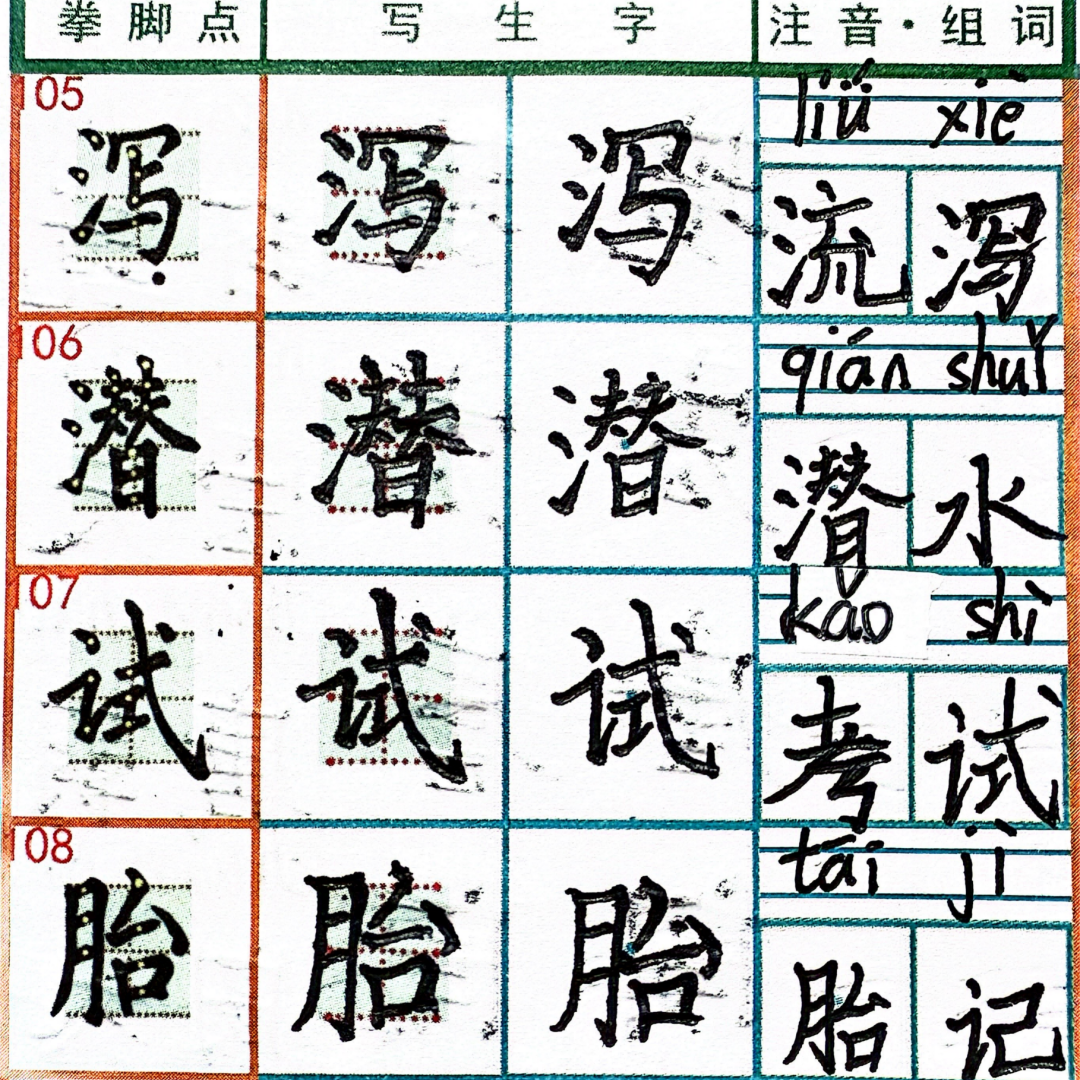 拳脚点 写生字 注音·组词
105 liú xiè
泻 泻 泻 流泻
106 qián shuǐ
潜 潜 潜 潜水
107 kǎo shì
试 试 试 考试
108 tāi jì
胎 胎 胎 胎记